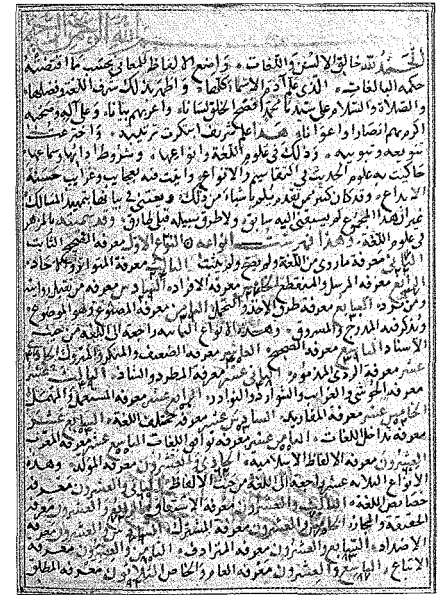 بسم الله الرحمن الرحيم
الحمد لله خالق الالسن واللغات واضع الالفاظ للمعاني بحسب ما اقتضته
حكمه البالغات الذي علم آدم الاسماء كلها واظهر بذلك شرف اللغة وفضلها
والصلاة والسلام على سيدنا محمد افصح الخلق لسانا واعربهم بيانا وعلى آله وصحبه
اكرم بهم انصارا واعوانا هذا علم شريف ابتكرت ترتيبه واخترعت
تنويعه وتبويبه وذلك في علوم اللغة وانواعها وشروط ادائها وسماعها
حاكيت به علوم الحديث في التقاسيم والانواع واتيت فيه بعجايب وغرايب حسنة
الابداع وقد كان كثير ممن تقدم يلم باشياء من ذلك ويعتني في بيانها بتمهيد المسالك
غير ان هذا المجموع لم يسبقني اليه سابق ولا طرق سبيله قبلي طارق وقد سميته بالمزهر
في علوم اللغة وهذا فهرست انواعه النوع الاول معرفة الصحيح الثابت
الثاني معرفة ما روي من اللغة ولم يصح ولم يثبت الثالث معرفة المتواتر والآحاد
الرابع معرفة المرسل والمنقطع الخامس معرفة الافراد السادس معرفة من تقبل روايته
ومن ترد السابع معرفة طرق الاخذ والتحمل الثامن معرفة المصنوع وهو الموضوع
ويذكر فيه المدرج والمسروق وهذه الانواع الثمانية راجعة الى اللغة من حيث
الاسناد التاسع معرفة الفصيح العاشر معرفة الضعيف والمنكر والمتروك الحادي
عشر معرفة الردي المذموم الثاني عشر معرفة المطرد والشاذ الثالث عشر
معرفة الحوشي والغرايب والشوارد والنوادر الرابع عشر معرفة المستعمل والمهمل
الخامس عشر معرفة المفاريد السادس عشر معرفة مختلف اللغة السابع عشر
معرفة تداخل اللغات الثامن عشر معرفة توافق اللغات التاسع عشر معرفة المعرب
العشرون معرفة الالفاظ الاسلامية الحادي والعشرون معرفة المولد وهذه
الانواع الثلاثة عشر راجعة الى اللغة من حيث الالفاظ الثاني والعشرون معرفة
خصائص اللغة الثالث والعشرون معرفة الاشتقاق الرابع والعشرون معرفة
الحقيقة والمجاز الخامس والعشرون معرفة المشترك السادس والعشرون معرفة
الاضداد السابع والعشرون معرفة المترادف الثامن والعشرون معرفة
الاتباع التاسع والعشرون معرفة العام والخاص الثلاثون معرفة المطلق